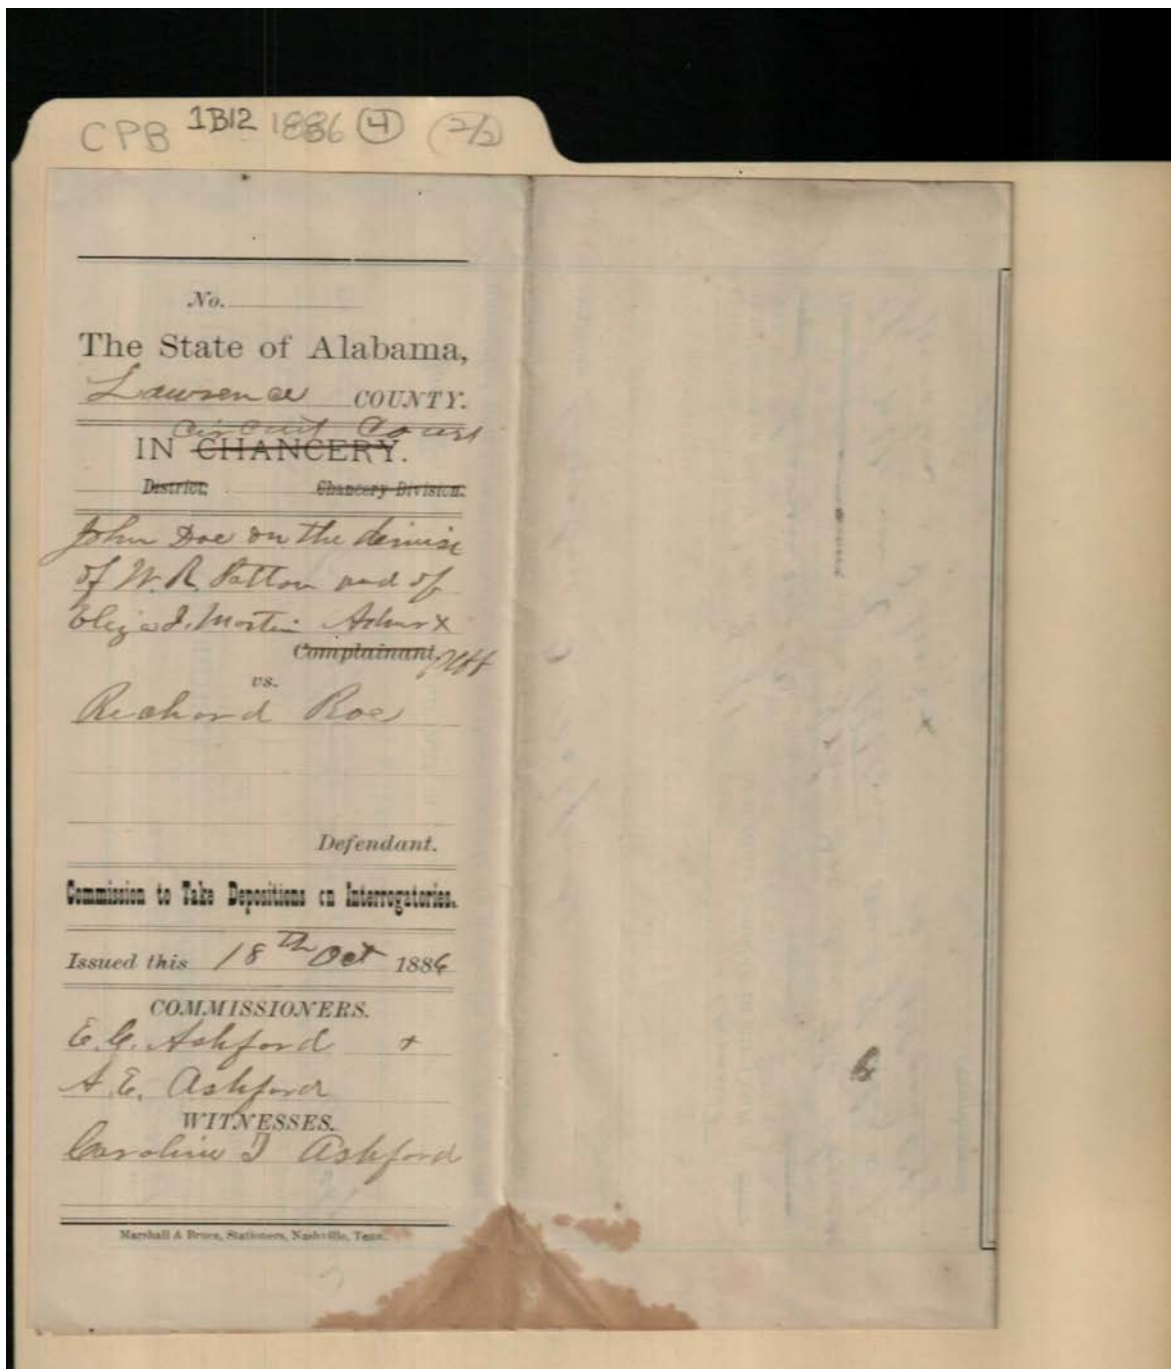 CPB 1B12 1886 4 (2/2)
No.
The State of Alabama,
Lawrence COUNTY.
Circuit Court
IN CHANCERY.
District. Chancery Division.
John Doe on the demise
of W. R. Patton and of
Eliza J. Martin Admrx
Complainant. Plff
vs.
Richard Roe
Defendant.
Commission to Take Depositions on Interrogatories.
Issued this 18th Oct 1886
COMMISSIONERS.
E. C. Ashford +
A. E. Ashford
WITNESSES.
Caroline T Ashford
Marshall & Bruce, Stationers, Nashville, Tenn.